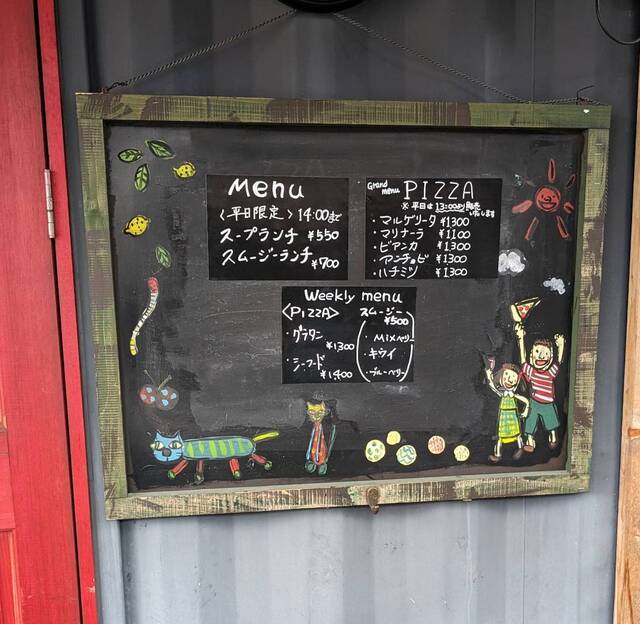 Menu
〈平日限定〉14:00まで
スープランチ ¥550
スムージーランチ
¥700
Grand menu PIZZA
※平日は13:00より販売いたします
・マルゲリータ ¥1300
・マリナーラ ¥1100
・ビアンカ ¥1300
・アンチョビ ¥1300
・ハチミツ ¥1300
Weekly menu
〈PIZZA〉
・グラタン
¥1300
・シーフード
¥1400
スムージー
¥500
・Mixベリー
・キウイ
・ブルーベリー